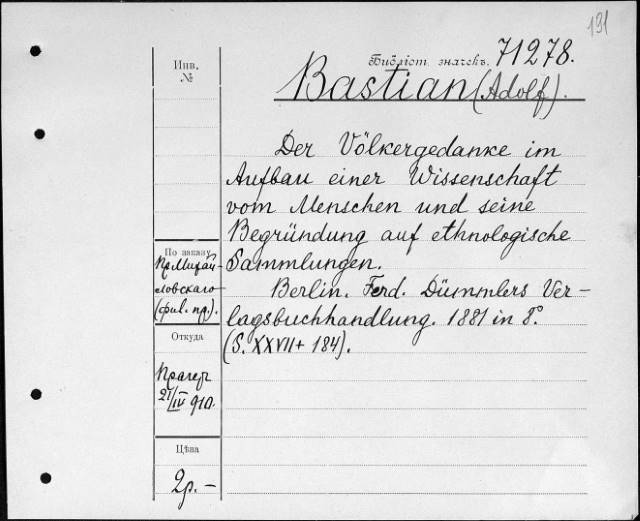 131
Библіот. значекъ. 71278.
Инв.
№
Bastian (Adolf).
Der Völkergedanke im
Aufbau einer Wissenschaft
vom Menschen und seine
Begründung auf ethnologische
Sammlungen.
Berlin. Ferd. Dümmlers Ver-
lagsbuchhandlung. 1881 in 8º.
(S. XXVII + 184).
По заказу
Пр. Михай-
ловскаго
(фил. пр.).
Откуда
Прагеръ
21/IV 910.
Цѣна
2р. –